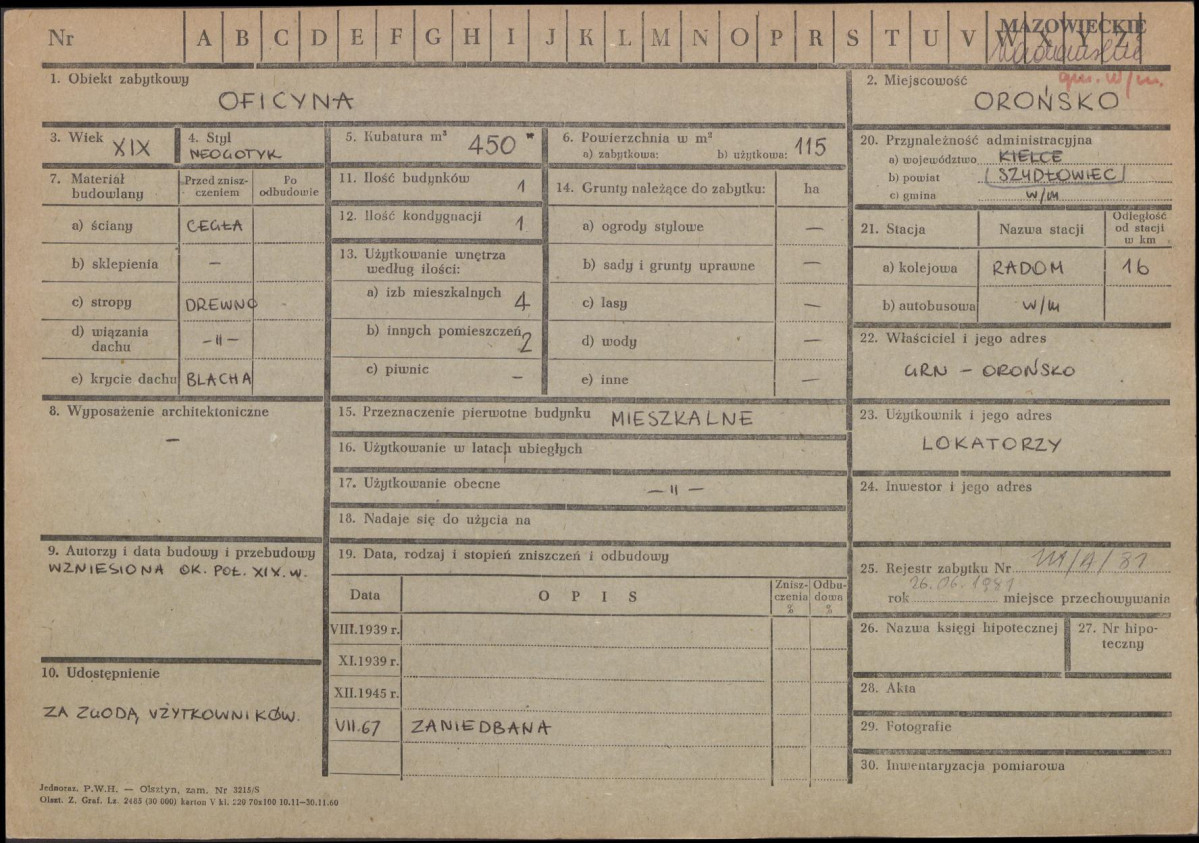 Nr A B C D E F G H I J K L M N O P R S T U V W X Y Z
MAZOWIECKIE
gm. w/m.
1. Obiekt zabytkowy
OFICYNA
2. Miejscowość
OROŃSKO
3. Wiek
XIX
4. Styl
NEOGOTYK
5. Kubatura m³
450
6. Powierzchnia w m²
a) zabytkowa: b) użytkowa: 115
7. Materiał budowlany
Przed zniszczeniem
Po odbudowie
a) ściany CEGŁA
b) sklepienia —
c) stropy DREWNO -
d) wiązania dachu —〃—
e) krycie dachu BLACHA
8. Wyposażenie architektoniczne
—
9. Autorzy i data budowy i przebudowy
WZNIESIONA OK. POŁ. XIX. W.
10. Udostępnienie
ZA ZGODĄ UŻYTKOWNIKÓW.
11. Ilość budynków 1
12. Ilość kondygnacji 1
13. Użytkowanie wnętrza
według ilości:
a) izb mieszkalnych 4
b) innych pomieszczeń 2
c) piwnic —
14. Grunty należące do zabytku: ha
a) ogrody stylowe —
b) sady i grunty uprawne —
c) lasy —
d) wody —
e) inne —
15. Przeznaczenie pierwotne budynku MIESZKALNE
16. Użytkowanie w latach ubiegłych
17. Użytkowanie obecne —〃—
18. Nadaje się do użycia na
19. Data, rodzaj i stopień zniszczeń i odbudowy
Data OPIS Zniszczenia % Odbudowa %
VIII.1939 r.
XI.1939 r.
XII.1945 r.
VII.67 ZANIEDBANA
20. Przynależność administracyjna
a) województwo KIELCE
b) powiat SZYDŁOWIEC
c) gmina W/M
21. Stacja Nazwa stacji Odległość od stacji w km
a) kolejowa RADOM 16
b) autobusowa W/M
22. Właściciel i jego adres
GRN — OROŃSKO
23. Użytkownik i jego adres
LOKATORZY
24. Inwestor i jego adres
25. Rejestr zabytku Nr /A/81
rok 26.06.1981 miejsce przechowywania
26. Nazwa księgi hipotecznej
27. Nr hipoteczny
28. Akta
29. Fotografie
30. Inwentaryzacja pomiarowa
Jednoraz. P.W.H. — Olsztyn, zam. Nr 3215/S
Olszt. Z. Graf. Lz. 2485 (30 000) karton V kl. 220 70x100 10.11—30.11.60